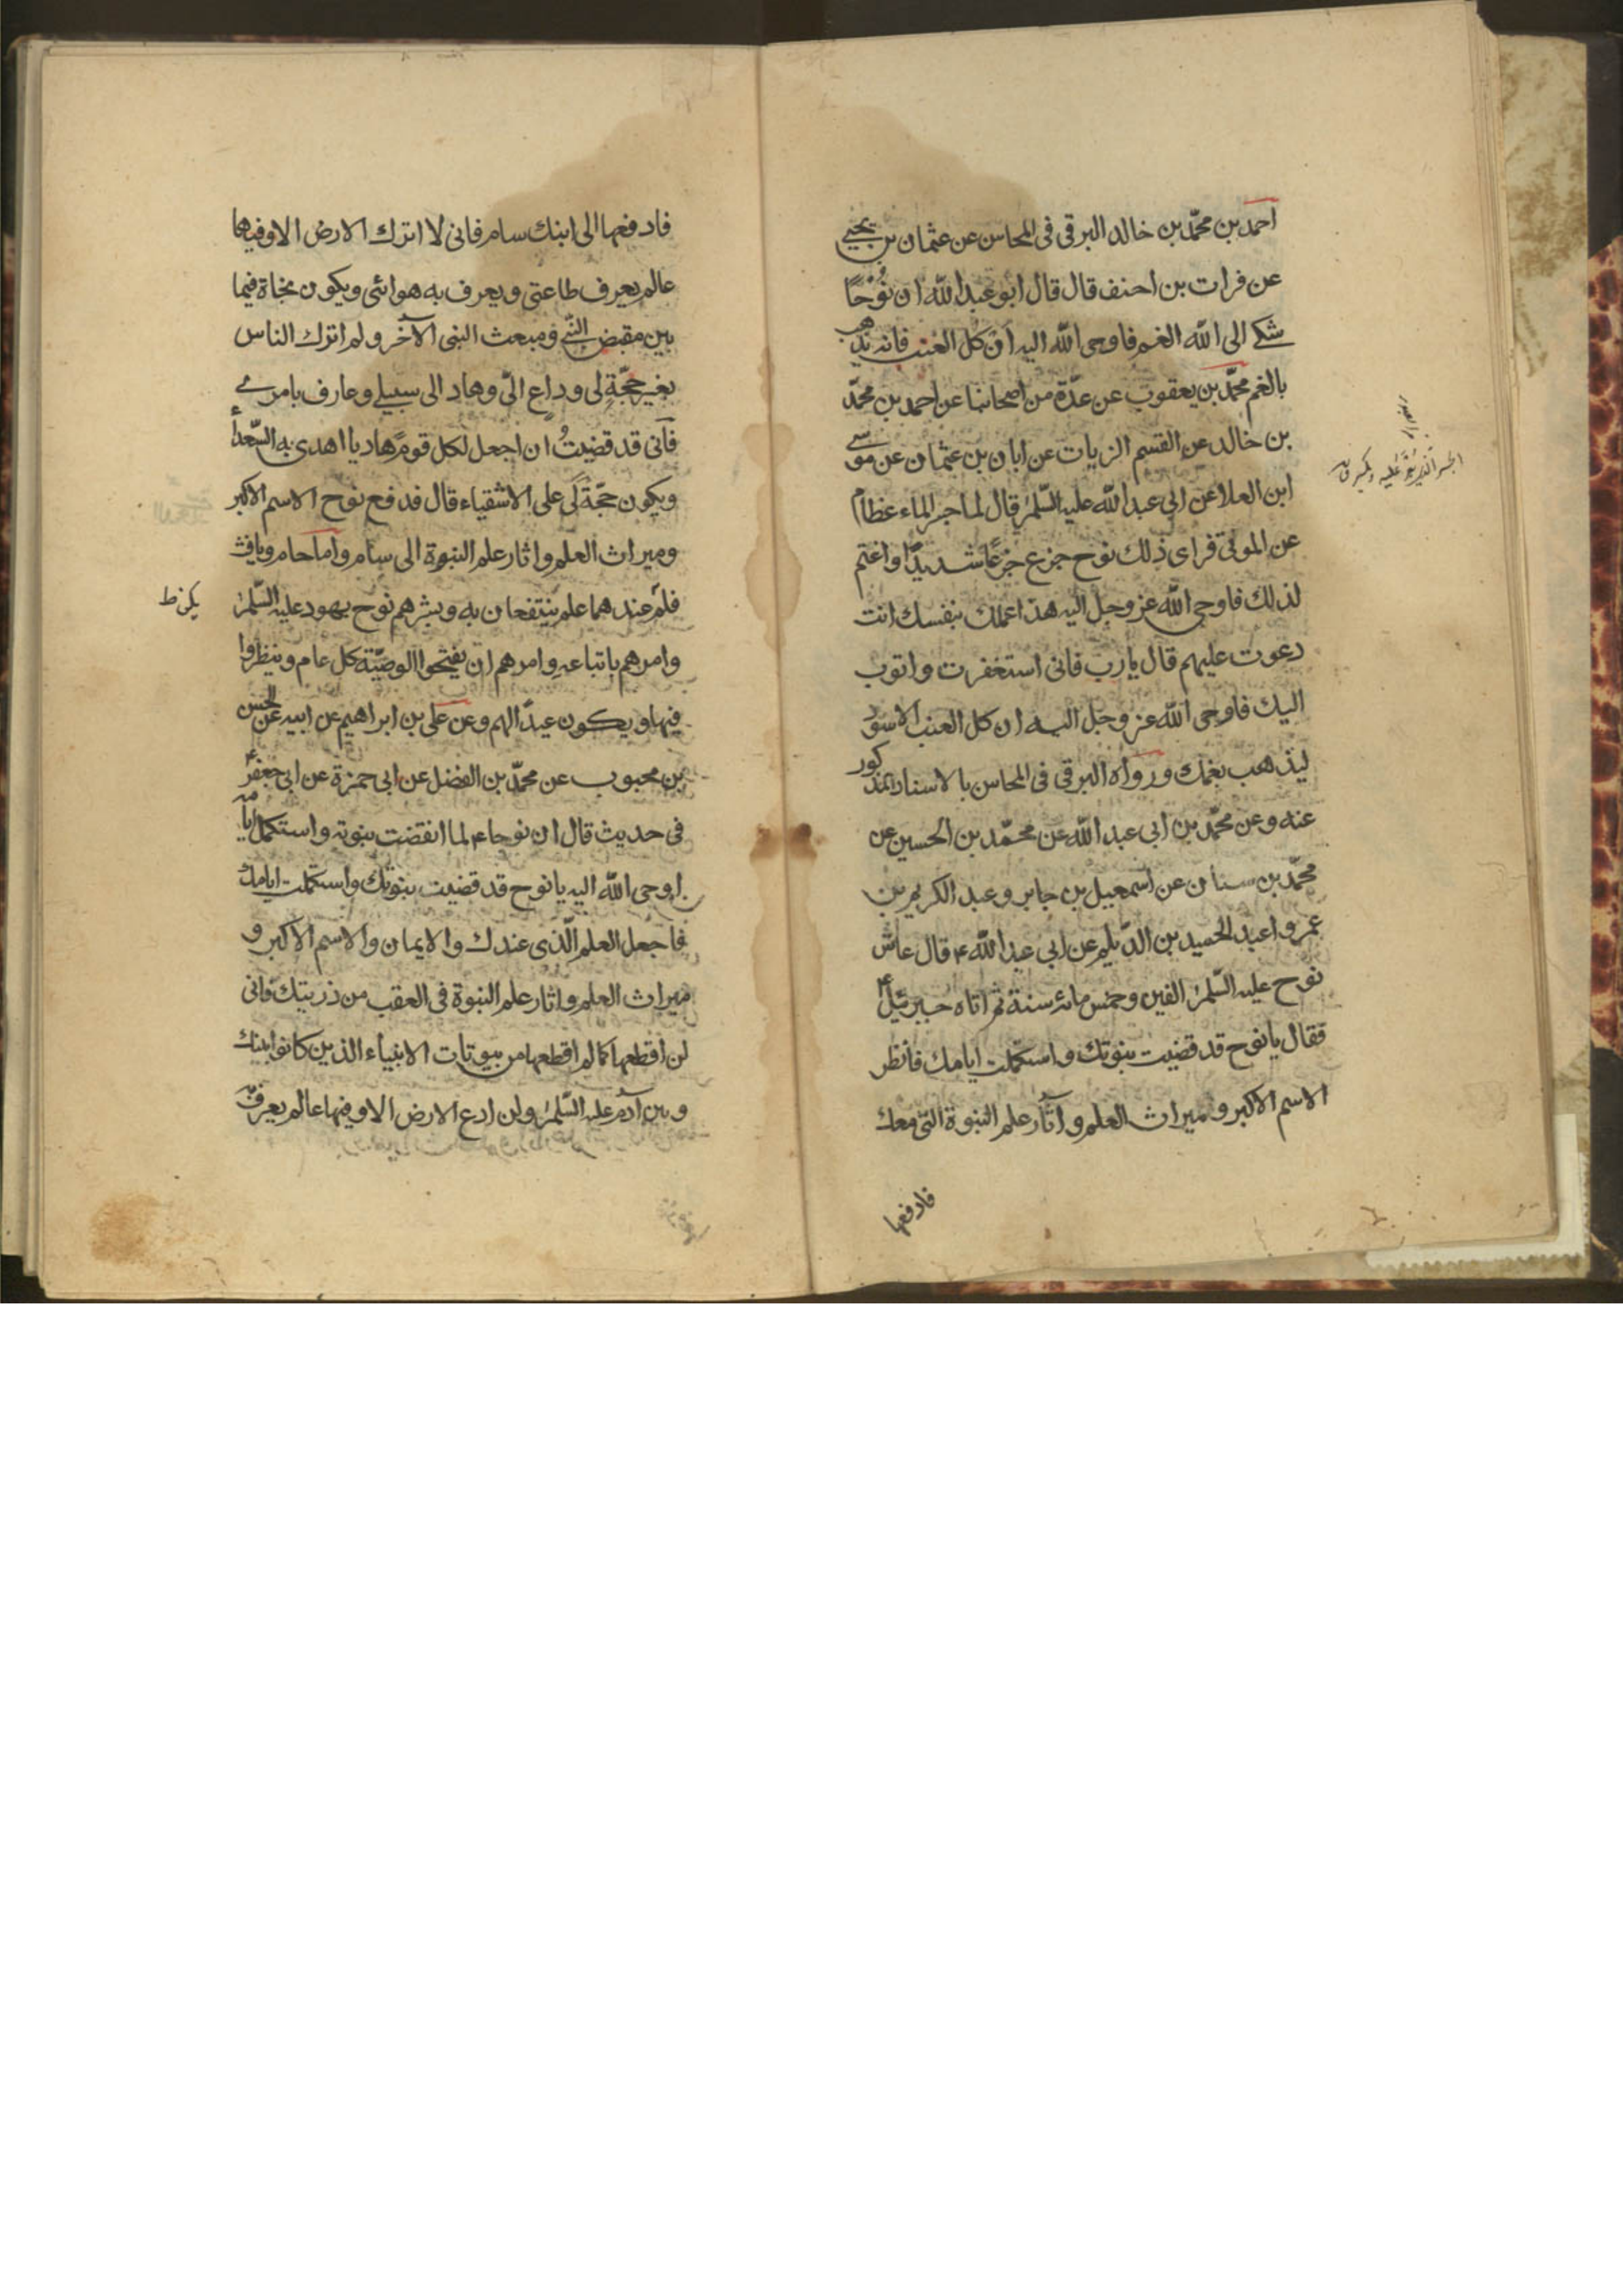 احمد بن محمّد بن خالد البرقي فى المحاسن عن عثمان بن يحيى
عن فرات بن احنف قال قال ابو عبد الله ان نُوْحًا
شكى الى الله الغم فاوحى الله اليه اَن كل العنب فانه يذهب
بالغم محمّد بن يعقوب عن عدّة من اصحابنا عن احمد بن محمّد
بن خالد عن القسم الزيات عن ابان بن عثمان عن موسى
ابن العلا عن ابى عبد الله عليه السّلم قال لما حسر الماء عظام
عن الموتى فراى ذلك نوح جزع جزعًا شديدًا واغتم
لذلك فاوحى الله عز وجل اليه هذا عملك بنفسك انت
دعوت عليهم قال يا رب فانى استغفرت واتوب
اليك فاوحى الله عز وجل اليه ان كل العنب الاسود
ليذهب بغمك ورواه البرقي فى المحاسن بالاسناد المذكور
عنه وعن محمّد بن ابى عبد الله عن محمّد بن الحسين عن
محمّد بن سنان عن اسمعيل بن جابر وعبد الكريم بن
عمرو اعبد الحميد بن الدّيلم عن ابى عبد الله ع قال عاش
نوح عليه السّلم الفين وخمس مائة سنة ثم اتاه جبرئيل ع
فقال يا نوح قد قضيت بنوتك واستكملت ايامك فانظر
الاسم الاكبر و ميراث العلم و آثار علم النبوة التى معك
فادفعها
فادفعها الى ابنك سام فانى لا اترك الارض الا وفيها
عالم يعرف طاعتى ويعرف به هوائى ويكون نجاة فيما
بين مقبض النّبى ومبعث النبى الآخر ولم اترك الناس
بغير حجّةٍ لى وداع الىّ وهاد الى سبيلى وعارف بامرى
فانى قد قضيتُ ان اجعل لكل قوم هاديا اهدى به السّعداء
ويكون حجّة لى على الاشقياء قال فدفع نوح الاسم الاكبر
وميراث العلم واثار علم النبوة الى سام واما حام ويافث
فلم عندهما علم ينتفعان به وبشرهم نوح بهود عليه السّلم
يكن ظ
وامرهم باتباعه وامرهم ان يفتحوا الوصيّة كل عام وينظروا
فيها ويكون عيدًا لهم وعن على بن ابراهيم عن ابيه عن الحسن
بن محبوب عن محمّد بن الفضل عن ابى حمزة عن ابى جعفر ع
فى حديث قال ان نوحا ع لما انقضت بنوته واستكمل ايامه
اوحى الله اليه يا نوح قد قضيت بنوتك واستكملت ايامك
فاجعل العلم الّذى عندك والايمان والاسم الاكبر و
ميراث العلم واثار علم النبوة فى العقب من ذريتك فانى
لن اقطعها كما لم اقطعها من بيوتات الانبياء الذين كانوا بينك
وبين آدم عليه السّلم ولن ادع الارض الا وفيها عالم يعرف به